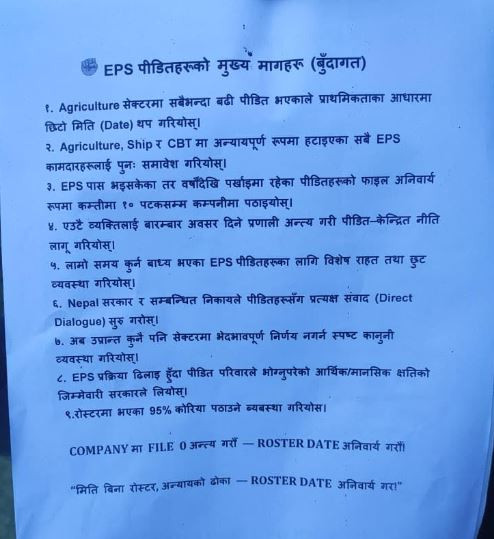 EPS पीडितहरूको मुख्य मागहरू (बुँदागत)
१. Agriculture सेक्टरमा सबैभन्दा बढी पीडित भएकाले प्राथमिकताका आधारमा
छिटो मिति (Date) थप गरियोस्।
२. Agriculture, Ship र CBT मा अन्यायपूर्ण रूपमा हटाइएका सबै EPS
कामदारहरूलाई पुनः समावेश गरियोस्।
३. EPS पास भइसकेका तर वर्षौंदेखि पर्खाइमा रहेका पीडितहरूको फाइल अनिवार्य
रूपमा कम्तीमा १० पटकसम्म कम्पनीमा पठाइयोस्।
४. एउटै व्यक्तिलाई बारम्बार अवसर दिने प्रणाली अन्त्य गरी पीडित–केन्द्रित नीति
लागू गरियोस्।
५. लामो समय कुर्न बाध्य भएका EPS पीडितहरूका लागि विशेष राहत तथा छुट
व्यवस्था गरियोस्।
६. Nepal सरकार र सम्बन्धित निकायले पीडितहरूसँग प्रत्यक्ष संवाद (Direct
Dialogue) सुरु गरोस्।
७. अब उप्रान्त कुनै पनि सेक्टरमा भेदभावपूर्ण निर्णय नगर्न स्पष्ट कानुनी
व्यवस्था गरियोस्।
८. EPS प्रक्रिया ढिलाइ हुँदा पीडित परिवारले भोग्नुपरेको आर्थिक/मानसिक क्षतिको
जिम्मेवारी सरकारले लियोस्।
९.रोस्टरमा भएका 95% कोरिया पठाउने ब्यबस्था गरियोस।
COMPANY मा FILE 0 अन्त्य गरौँ — ROSTER DATE अनिवार्य गरौँ!
“मिति बिना रोस्टर, अन्यायको ढोका — ROSTER DATE अनिवार्य गर!”